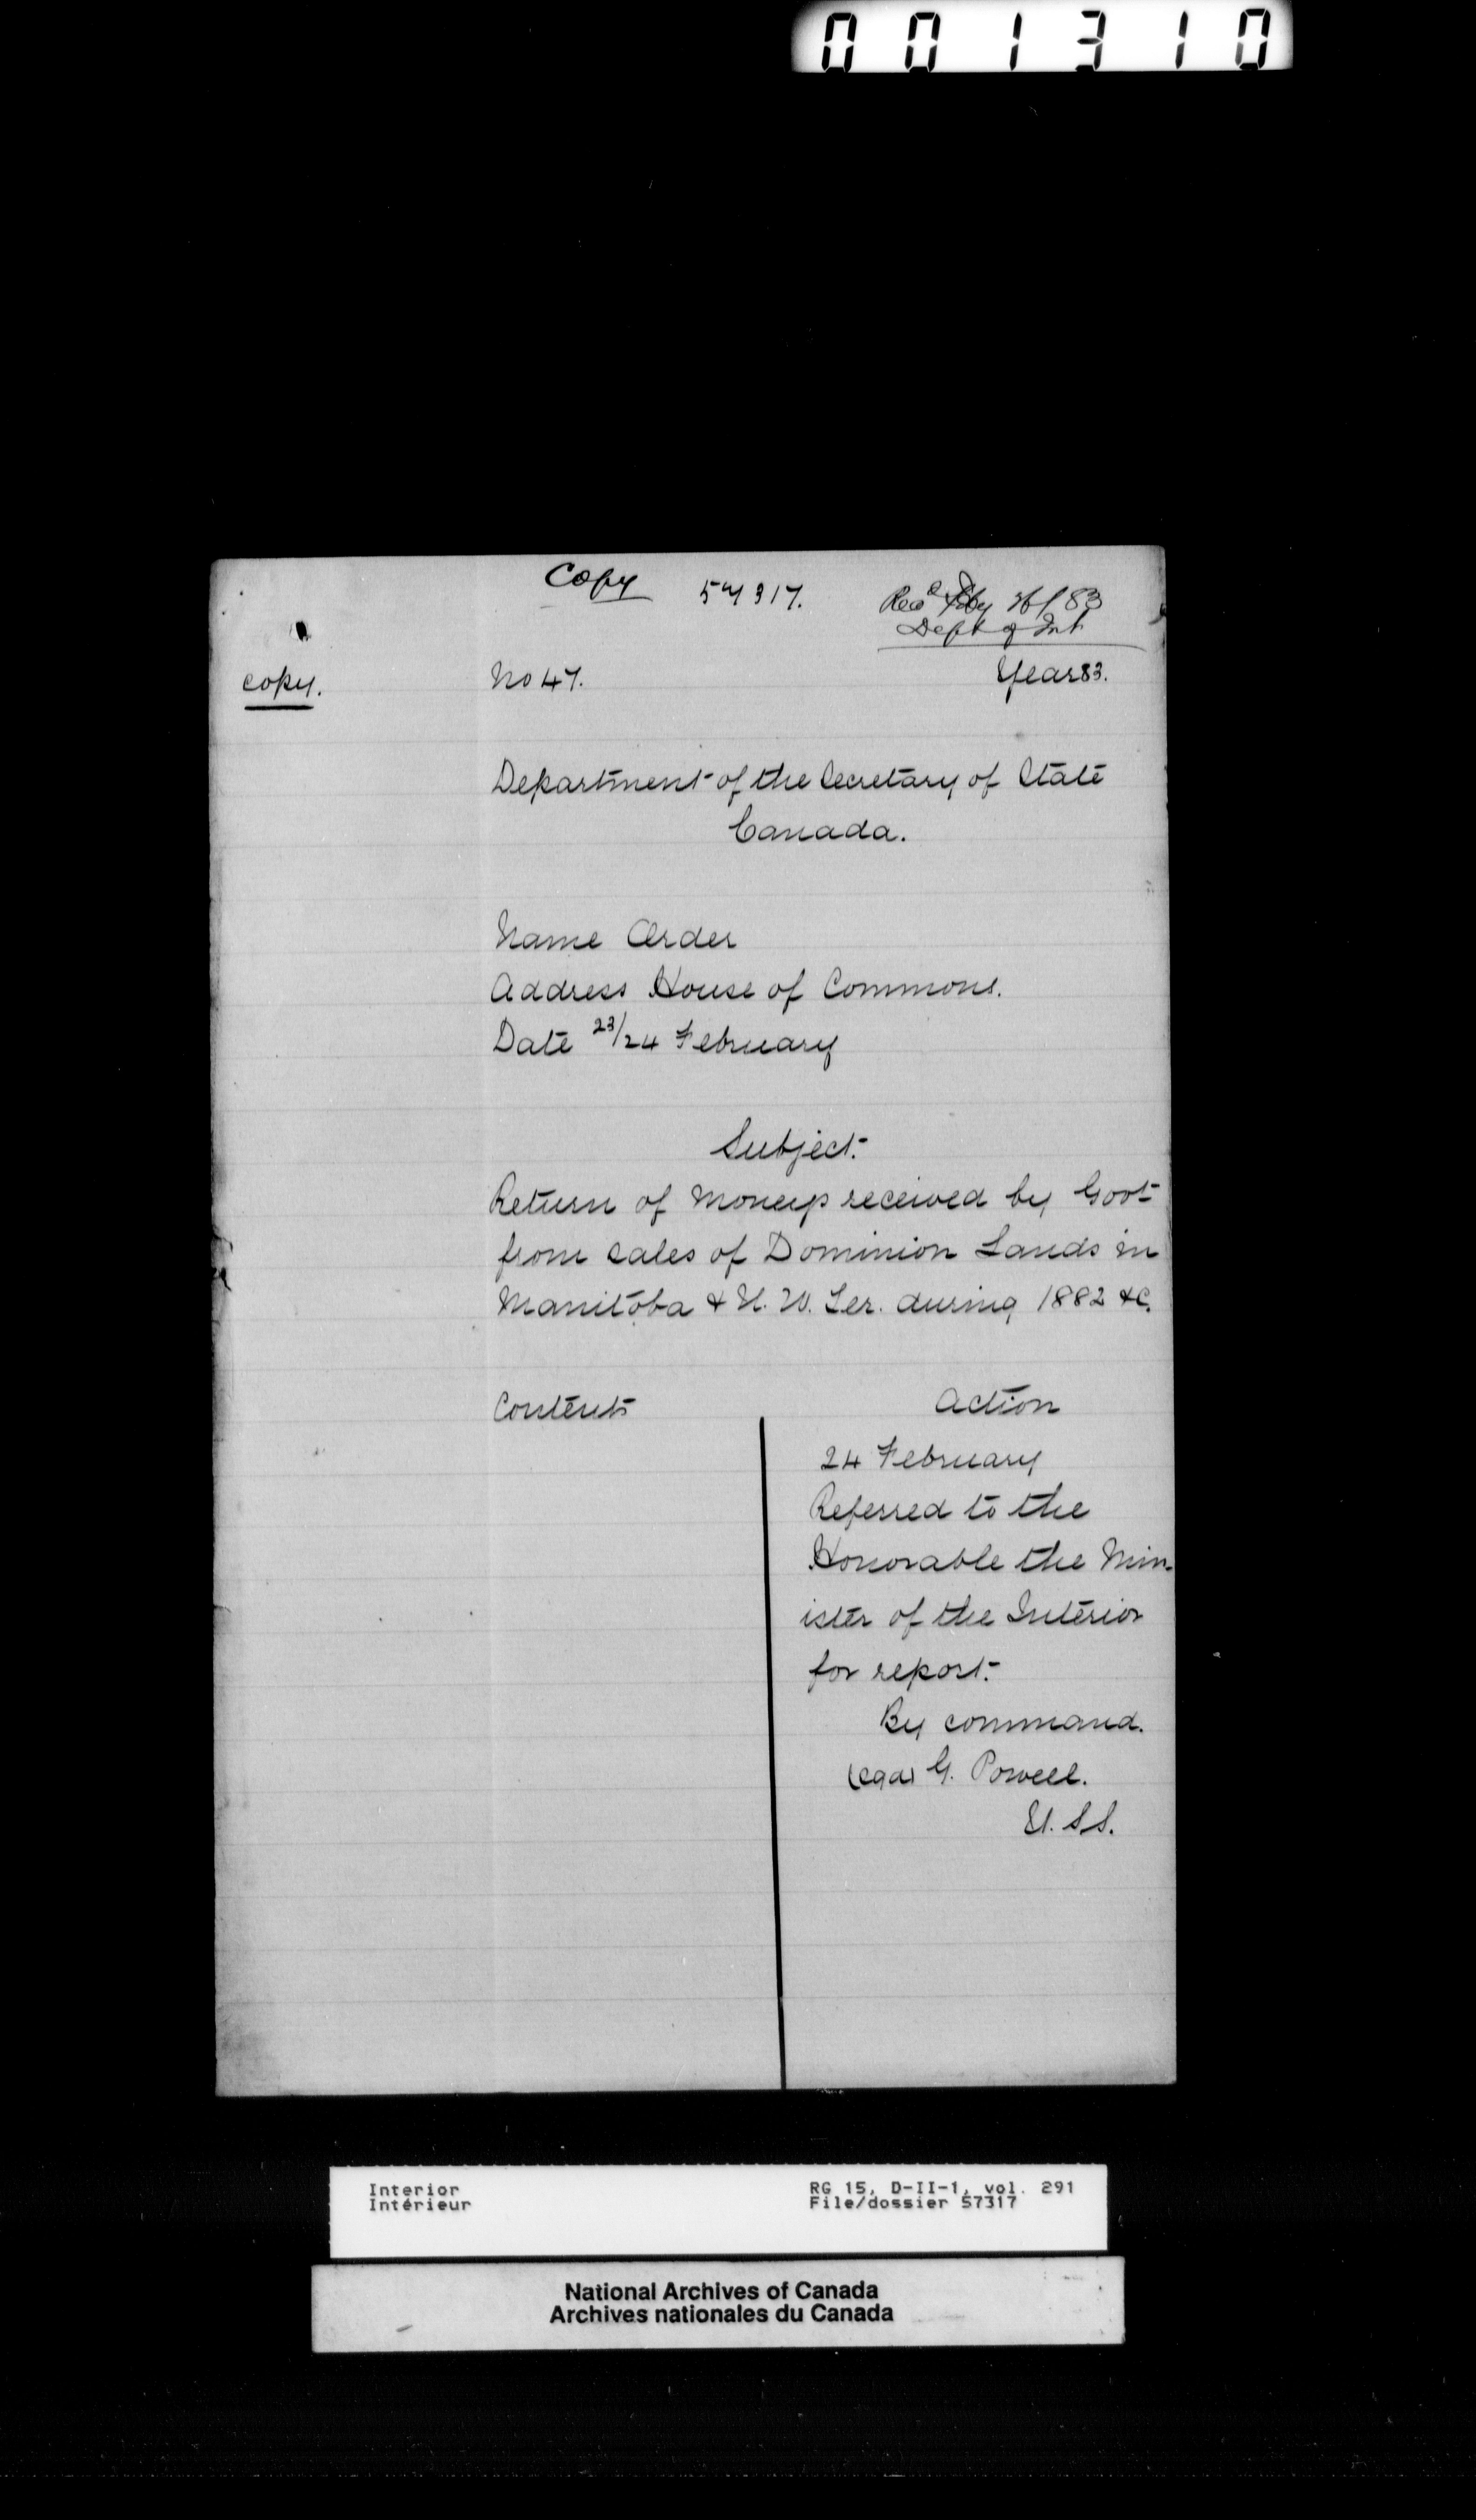 001310
Copy 57317. Recd Feby 26/83
Dept of Int
copy. No 47. Year 83.
Department of the Secretary of State
Canada.
Name Order
Address House of Commons.
Date 23/24 February
Subject.
Return of moneys received by Govt
from sales of Dominion Lands in
Manitoba & N. W. Ter. during 1882 &c.
Contents Action
24 February
Referred to the
Honorable the Min-
ister of the Interior
for report.
By command.
(sgd) G. Powell.
U. S S.
Interior RG 15, D-II-1, vol. 291
Intérieur File/dossier 57317
National Archives of Canada
Archives nationales du Canada